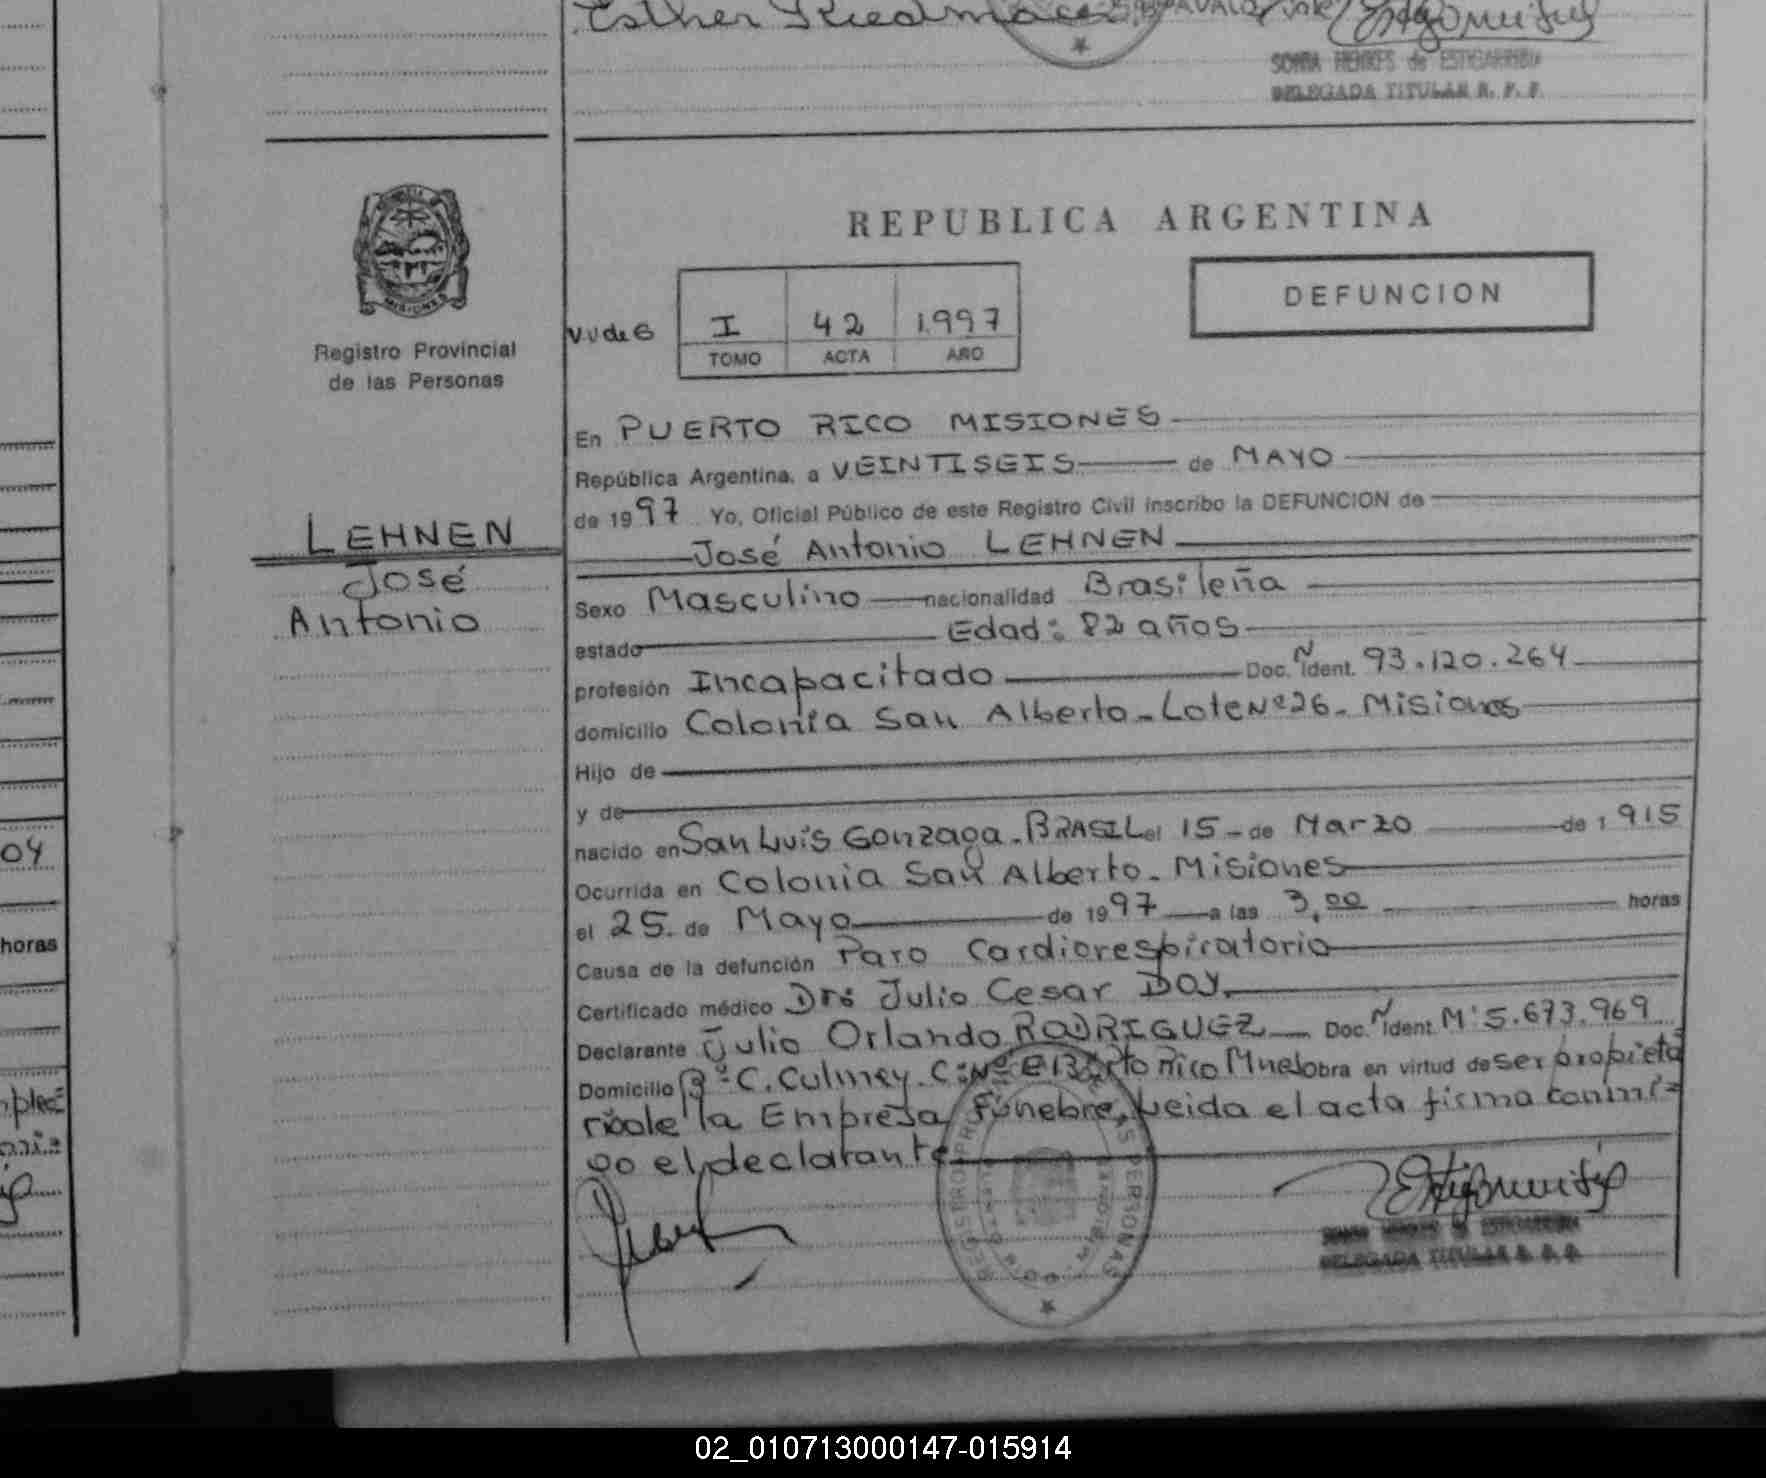 Esther
SONIA HENKES de ESTIGARRIBIA
DELEGADA TITULAR R. P. P.
MISIONES
Registro Provincial
de las Personas
REPUBLICA ARGENTINA
DEFUNCION
I 42 1.997
TOMO ACTA AÑO
En PUERTO RICO MISIONES
República Argentina, a VEINTISEIS de MAYO
de 1997 Yo, Oficial Público de este Registro Civil inscribo la DEFUNCION de
José Antonio LEHNEN
LEHNEN
José
Antonio
Sexo Masculino nacionalidad Brasileña
estado Edad: 82 años
profesión Incapacitado Doc. Nº Ident. 93.120.264
domicilio Colonia San Alberto - Lote Nº 26 - Misiones
Hijo de
y de
nacido en San Luis Gonzaga - BRASIL el 15 - de Marzo de 1915
Ocurrida en Colonia San Alberto - Misiones
el 25. de Mayo de 1997 a las 3,00 horas
Causa de la defunción Paro Cardiorespiratorio
Certificado médico Dr: Julio Cesar DOY.
Declarante Julio Orlando RODRIGUEZ Doc. Nº Ident. M: 5.673.969
Domicilio Bº C. Culmey. Pto Rico Mnes obra en virtud de ser propieta
rio de la Empresa Fúnebre, Leida el acta firma conmi=
go el declarante
DELEGADA TITULAR R. P. P.
04
horas
02_010713000147-015914